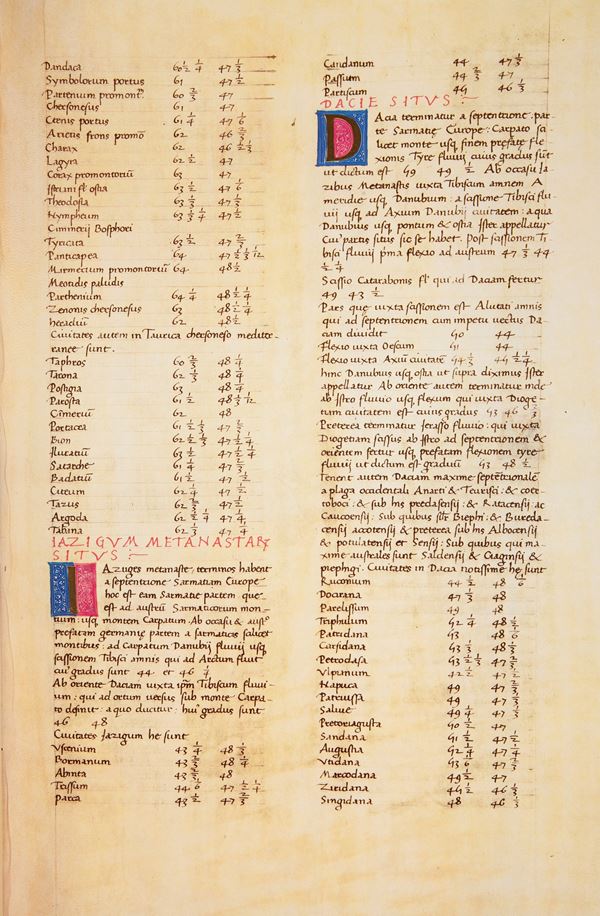 Dandaca 60 ½ ¼ 47 ⅓
Symbolorum portus 61 47 ½
Partenium promont. 60 ⅔ 47
Chersonesus 61 47
Ctenis portus 61 ¼ 47 ⅙
Arietis frons promõ 62 46 ⅔
Charax 62 46 ½ ⅓
Lagyra 62 ½ 47
Corax promontoriũ 63 47
Istriani fl' ostia 63 ½ 47 ⅙
Theodosia 63 ⅓ 47 ⅓
Nymphęum 63 ½ ¼ 47 ½
Cimmerij Bosphori
Tyrictata 63 ½ 47 ⅔
Panticapea 64 47 ½ ⅓ 1/12
Mirmecium promontoriũ 64 48 ½
Meotidis paludis
Parthenium 64 ¼ 48 ½ ¼
Zenonis chersonesus 63 48 ½ ¼
heradiũ 62 48 ½
Civitates autem in Taurica chersoneso mediter-
ranee sunt.
Taphros 60 ⅔ 48 ¼
Tarona 62 ⅓ 48 ¼
Postigia 63 48 ¼
Parosta 61 ½ 48 ⅓ 1/12
Cimeriũ 62 48
Portacea 61 ½ ⅓ 47 ½
Bion 62 ½ ⅓ 47 ½ ¼
Iluratũ 63 ½ 47 ½ ¼
Satarche 61 ¼ 47 ⅔
Badatiũ 61 ½ 47 ½
Cyteum 62 ¼ 47 ½
Tazus 62 ⅔ 47 ½
Argoda 62 ½ ¼ 47 ¼
Tabina 62 ⅓ 47 ¼
IAZIGVM METANASTARꝜ
SITVS :
IAzuges metanastę terminos habent
a septentrione Sarmatiam Europę
hoc est eam Sarmatię partem quę
est ad austrũ Sarmaticorum mon-
tium: usq; montem Carpatum Ab occasu & austº
prefatam germanię partem a sarmaticis scilicet
montibus: ad Carpatum Danubij fluvij usq;
sassionem Tibisci amnis qui ad Arctum fluit
cui' gradus sunt 44 et 46 ¼
Ab oriente Daciam iuxta ipm Tibiscum fluvi-
um: qui ad ortum versus sub monte Carpa-
to definit: a quo ducitur: hui' gradus sunt
46 48
Civitates Jazigum hę sunt
Vscenium 43 ¼ 48 ⅓
Bormanum 43 ⅔ 48 ¼
Abinta 43 ⅓ 48
Trissum 44 ⅙ 47 ½ ¼
Parca 43 ½ 47 ⅔
Candanum 44 47 ⅓
Passum 44 ⅔ 47
Partiscum 45 46 ⅓
DACIE SITVS :
DAcia terminatur a septentrione. par-
te Sarmatię Europę: Carpato sci-
licet monte usq; finem prefatę Fle-
xionis Tyrę fluvij cuius gradus sũt
ut dictum est 49 49 ½ Ab occasu Ja-
zibus Metanastis iuxta Tibiscum amnem A
meridie usq; Danubum: a sassione Tibisci flu-
vij usq; ad Axium Danubij civitatem: a qua
Danubius usq; pontum & ostia Ister appellatur
Cui' partis situs sic se habet. Post sassionem Ti-
bisci fluvij pma flexio ad austrum 47 ⅓ 44
½ ¼
Scissio Catarabonis fl' qui id Daciam fertur
49 43 ½
Pars que iuxta sassionem est Alutati amnis
qui ad septentrionem cum impetu vectus Da-
ciam dividit 50 44
Flexio iuxta Oescum 51 44
Flexio iuxta Axiũ civitatẽ 54 ⅓ 45 ½ ¼
hinc Danubius usq; ostia ut supra diximus Ister
appellatur Ab oriente autem terminatur inde
ab Istro fluvio usq; flexum qui iuxta Dioge-
tiam civitatem est cuius gradus 53 46 ⅔
Preterea terminatur Jerasso fluvio: qui iuxta
Diogetiam sassus ab Istro ad septentrionem &
orientem fertur usq; prefatam flexionem tyrę
fluvij ut dictum est graduũ 53 48 ½
Tenent autem Daciam maxime septẽtrionalẽ
a plaga occidentali Anarti & Teurisci: & cote-
roboci: & sub his predasensij: & Ratacensij &
Caucoensij: Sub quibus sũt Biephi: & Bureda-
censij accotensij & preterea sub his Albocensij
& potulatensij et Sensij: Sub quibus qui ma-
ximę australes sunt Saldensij & Ciaginsij &
piephgi: Civitates in Dacia notissimę hę sunt
Ruconium 44 ½ 48 ⅙
Docirana 47 ⅓ 48
Parolissum 49 48
Triphulum 52 ¼ 48 ½
Patridana 53 48 ⅙
Carsidana 53 ⅓ 48
Petrodasa 53 ½ ⅓ 47 ⅔
Vlpanum 42 ½ 47 ½
Napuca 49 47 ⅔
Patruissa 49 47 ⅓
Saline 49 ¼ 47 ⅓
Pretoriagusta 50 ½ 47
Sandana 51 ½ 47 ½
Augustia 52 ¼ 47 ¼
Vtidana 53 ⅙ 47 ⅔
Marcodana 49 ½ 47
Ziridana 45 ½ 46 ⅓
Singidana 48 46 ⅓